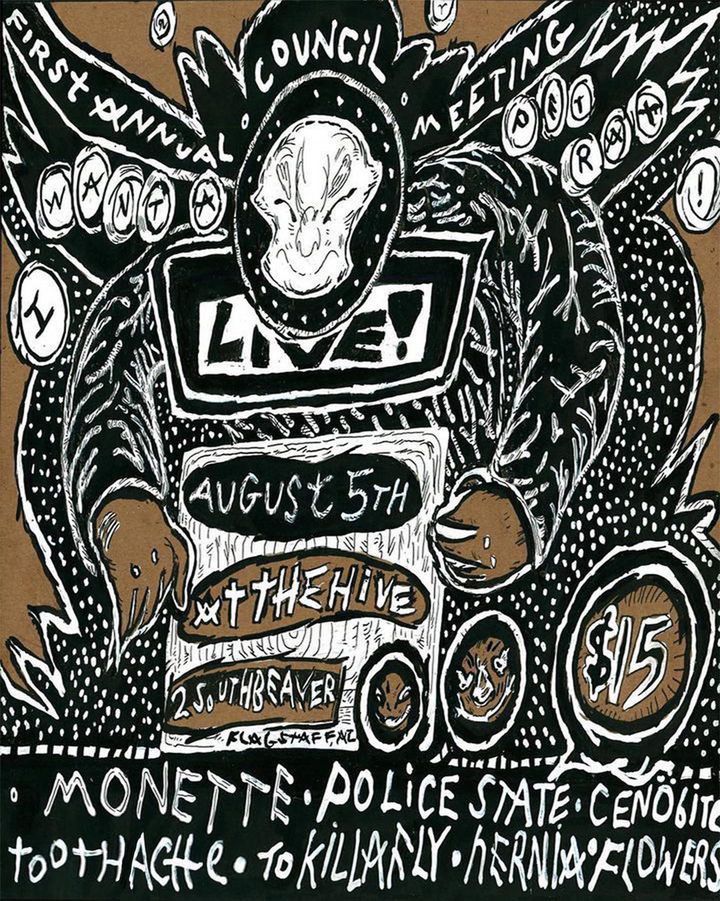 FIRST ANNUAL COUNCIL MEETING
I WANT A PET RAT!
LIVE!
AUGUST 5TH
AT THE HIVE
2 SOUTH BEAVER
FLAGSTAFF AZ
$15
• MONETTE • POLICE STATE • CENÖBITE
TOOTHACHE • TO KILL A FLY • HERNIA • FLOWERS